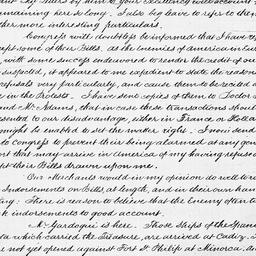 mentioning him so long. I also beg leave to refer to them
other more interesting particulars.
Congress will doubtless be informed that I have re
cept some of their Bills. as the enemies of america in Eur
with some success endeavored to render the credit of our
suspected, it appeared to me expedient to state the reason
refusals very particularly, and cause them to be record
in the Protests. I have sent copies of them to Doctor
and Mr. Adams, that in case these transactions should
presented to our disadvantage, either in France or Hollan
might be enabled to set the matter right. I now send
to Congress to prevent their being alarmed at any gen
rt that may arrive in America of my having refused
pt their Bills drawn upon me.
Our Merchants would in my opinion do well to
Indorsements on Bills, at length, and in their own han
ting: There is reason to believe that the Enemy often t
k indorsements to good account.
M. Gardoqui is here. Those Ships of the Spani
ta which carried the Treasure, are arrived at Cadiz.
re not yet opened against Fort St. Philip at Minorca, an